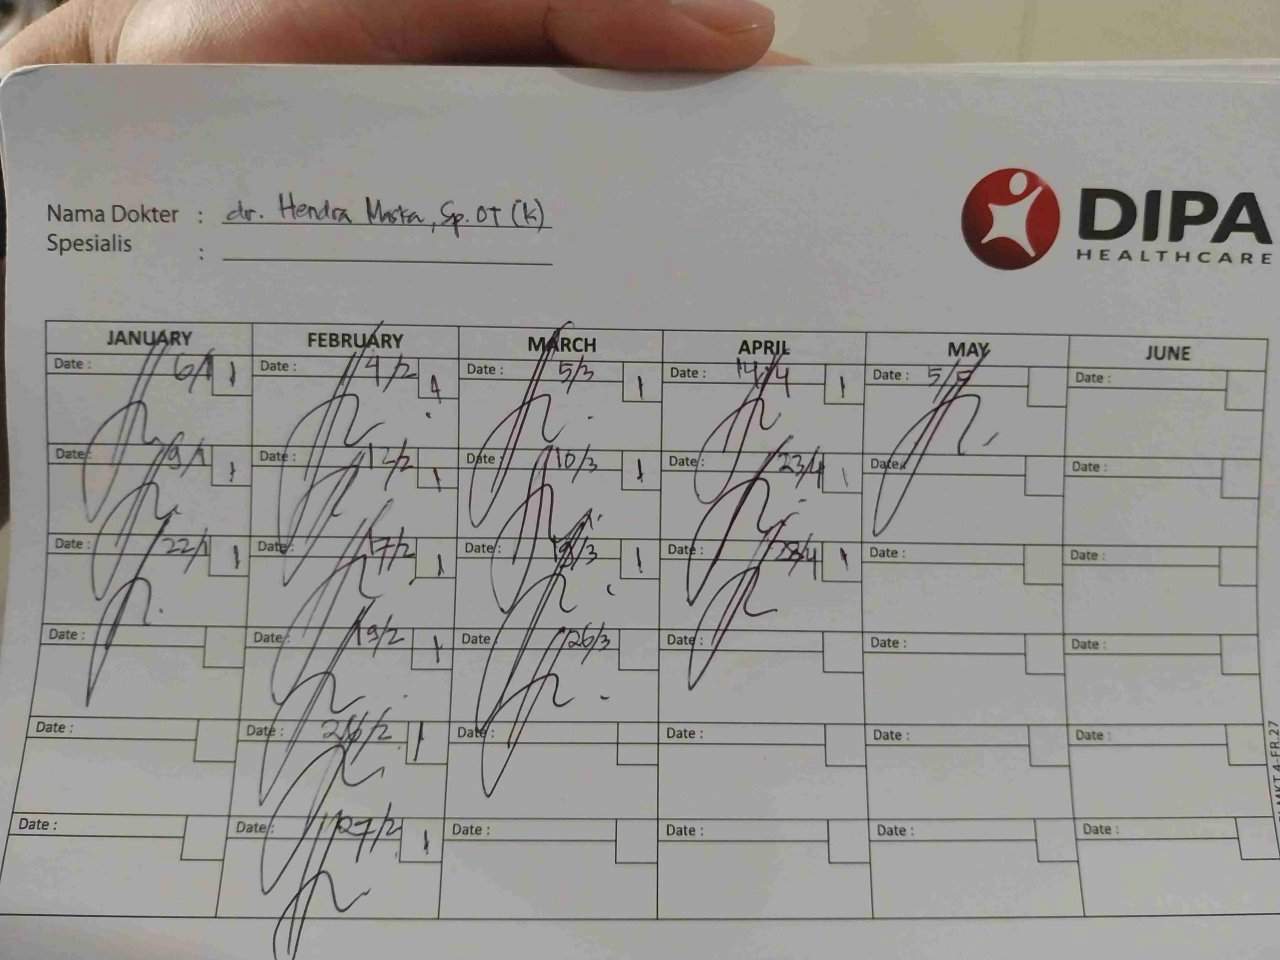 Nama Dokter : dr. Hendra Maska, Sp. OT (K)
Spesialis :
DIPA
HEALTHCARE
JANUARY FEBRUARY MARCH APRIL MAY JUNE
Date : 6/1 1 Date : 4/2 1 Date : 5/3 1 Date : 14/4 1 Date : 5/5 Date :
Date : 9/1 1 Date : 12/2 1 Date : 10/3 1 Date : 23/4 1 Date : Date :
Date : 22/1 1 Date : 17/2 1 Date : 18/3 1 Date : 28/4 1 Date : Date :
Date : Date : 19/2 1 Date : 26/3 Date : Date : Date :
Date : Date : 26/2 1 Date : Date : Date : Date :
Date : Date : 27/2 1 Date : Date : Date : Date :